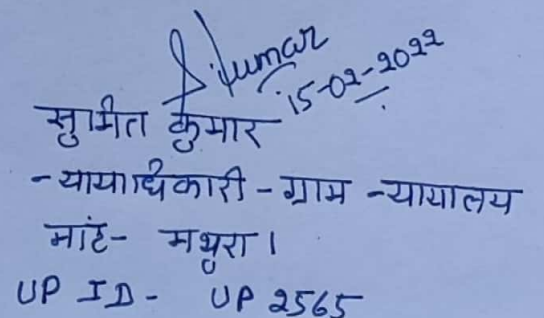 S.Kumar
15-02-2022
सुमित कुमार
न्यायाधिकारी - ग्राम न्यायालय
मांट - मथुरा।
UP ID - UP 2565